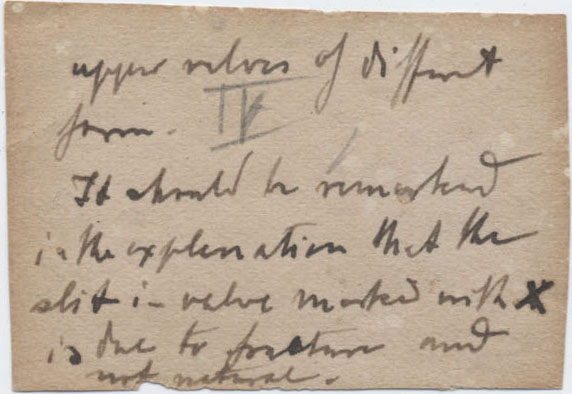 upper valves of different
form. IV
It should be remarked
in the explanation that the
slit in valve marked with X
is due to fracture and
not natural.